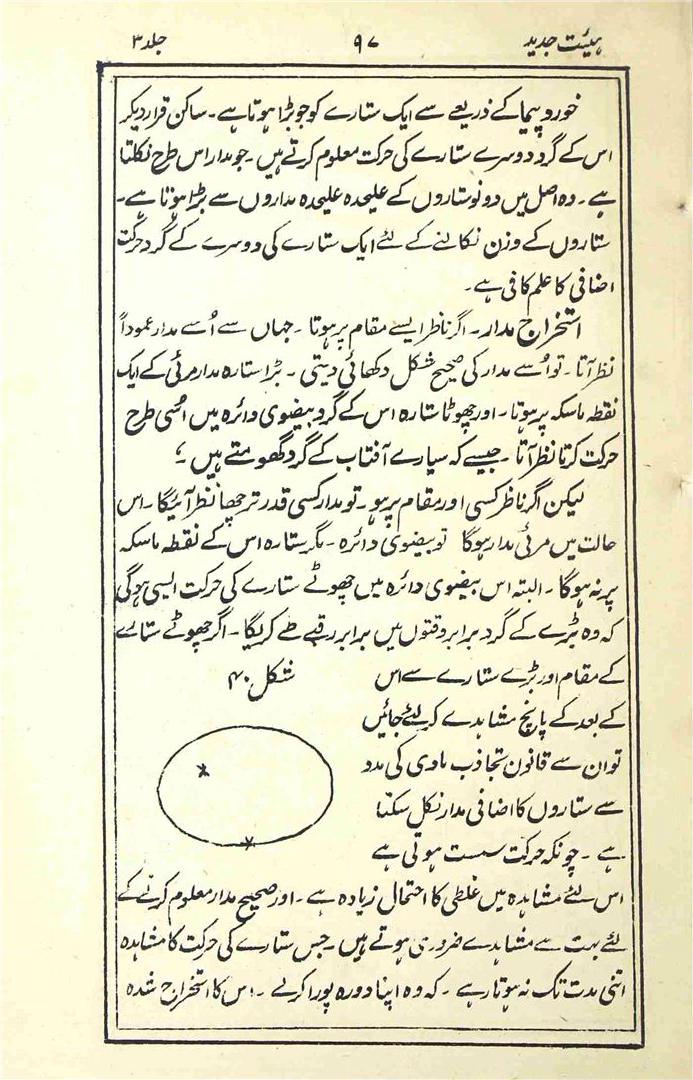 ہیئت جدید ۹۷ جلد ۳
خورد پیما کے ذریعے سے ایک ستارے کو جو بڑا ہوتا ہے۔ ساکن قرار دیکر
اس کے گرد دوسرے ستارے کی حرکت معلوم کرتے ہیں۔ جو مدار اس طرح نکلتا
ہے۔ وہ اصل میں دونو ستاروں کے علیحدہ علیحدہ مداروں سے بڑا ہوتا ہے۔
ستاروں کے وزن نکالنے کے لئے ایک ستارے کی دوسرے کے گرد حرکت
اضافی کا علم کافی ہے۔
استخراج مدار۔ اگر ناظر ایسے مقام پر ہوتا۔ جہاں سے اُسے مدار عموداً
نظر آتا۔ تو اُسے مدار کی صحیح شکل دکھائی دیتی۔ بڑا ستارہ مدار مرئی کے ایک
نقطہ ماسکہ پر ہوتا۔ اور چھوٹا ستارہ اس کے گرد بیضوی دائرہ میں اُسی طرح
حرکت کرتا نظر آتا۔ جیسے کہ سیارے آفتاب کے گرد گھومتے ہیں۔
لیکن اگر ناظر کسی اور مقام پر ہو۔ تو مدار کسی قدر ترچھا نظر آئیگا۔ اس
حالت میں مرئی مدار ہوگا تو بیضوی دائرہ۔ مگر ستارہ اس کے نقطہ ماسکہ
پر نہ ہوگا۔ البتہ اس بیضوی دائرہ میں چھوٹے ستارے کی حرکت ایسی ہوگی
کہ وہ بڑے کے گرد برابر وقتوں میں برابر رقبے طے کریگا۔ اگر چھوٹے ستارے
کے مقام اور بڑے ستارے سے اس
شکل ۴۰
کے بعد کے پانچ مشاہدے کر لئے جائیں
تو ان سے قانون تجاذب مادی کی مدد
سے ستاروں کا اضافی مدار نکل سکتا
ہے۔ چونکہ حرکت سست ہوتی ہے
اس لئے مشاہدہ میں غلطی کا احتمال زیادہ ہے۔ اور صحیح مدار معلوم کرنے کے
لئے بہت سے مشاہدے ضروری ہوتے ہیں۔ جس ستارے کی حرکت کا مشاہدہ
اتنی مدت تک نہ ہوتا رہے۔ کہ وہ اپنا دورہ پورا کرلے۔ اس کا استخراج شدہ